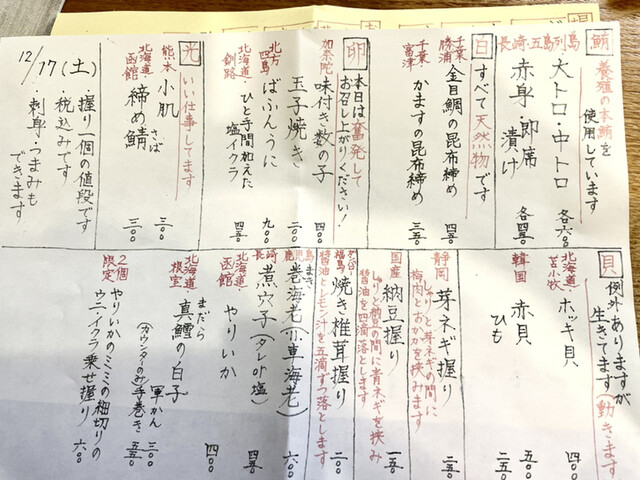 鮪
養殖の本鮪を
使用しています
長崎・五島列島
大トロ・中トロ 各六〇〇
赤身・即席漬け 各四五〇
白
すべて天然物です
千葉勝浦
金目鯛の昆布締め 四五〇
千葉富津
かますの昆布締め 三五〇
卵
本日は奮発して
お召し上がりください！
加奈陀
味付き数の子 四〇〇
玉子焼き 二〇〇
北方四島
ばふんうに 九〇〇
北海道・釧路
ひと手間加えた
塩イクラ 四五〇
光
いい仕事してます
熊本
小肌 三〇〇
北海道・函館
締め鯖 三〇〇
さば
12/17(土)
・握り一個の値段です
・税込みです
・刺身・つまみも
できます
貝
例外ありますが
生きてます(動きます)
北海道・苫小牧
ホッキ貝 五〇〇
韓国
赤貝 五〇〇
ひも 二五〇
静岡
芽ネギ握り 二五〇
しゃりと芽ネギの間に
梅肉とおかかを挟みます
国産
納豆握り 一五〇
しゃりと納豆の間に青ネギを挟み
醤油を四滴落とします
福島
焼き椎茸握り 二〇〇
醤油とレモン汁を五滴ずつ落とします
鹿児島
巻海老(小車海老) 六〇〇
まき
長崎
煮穴子(タレor塩) 四五〇
北海道・函館
やりいか 四〇〇
北海道・根室
まだら
真鱈の白子
軍かん 三〇〇
(カウンターのみ手巻き 五五〇
2個限定
やりいかのミミの細切りの
ウニ・イクラ乗せ握り 六〇〇